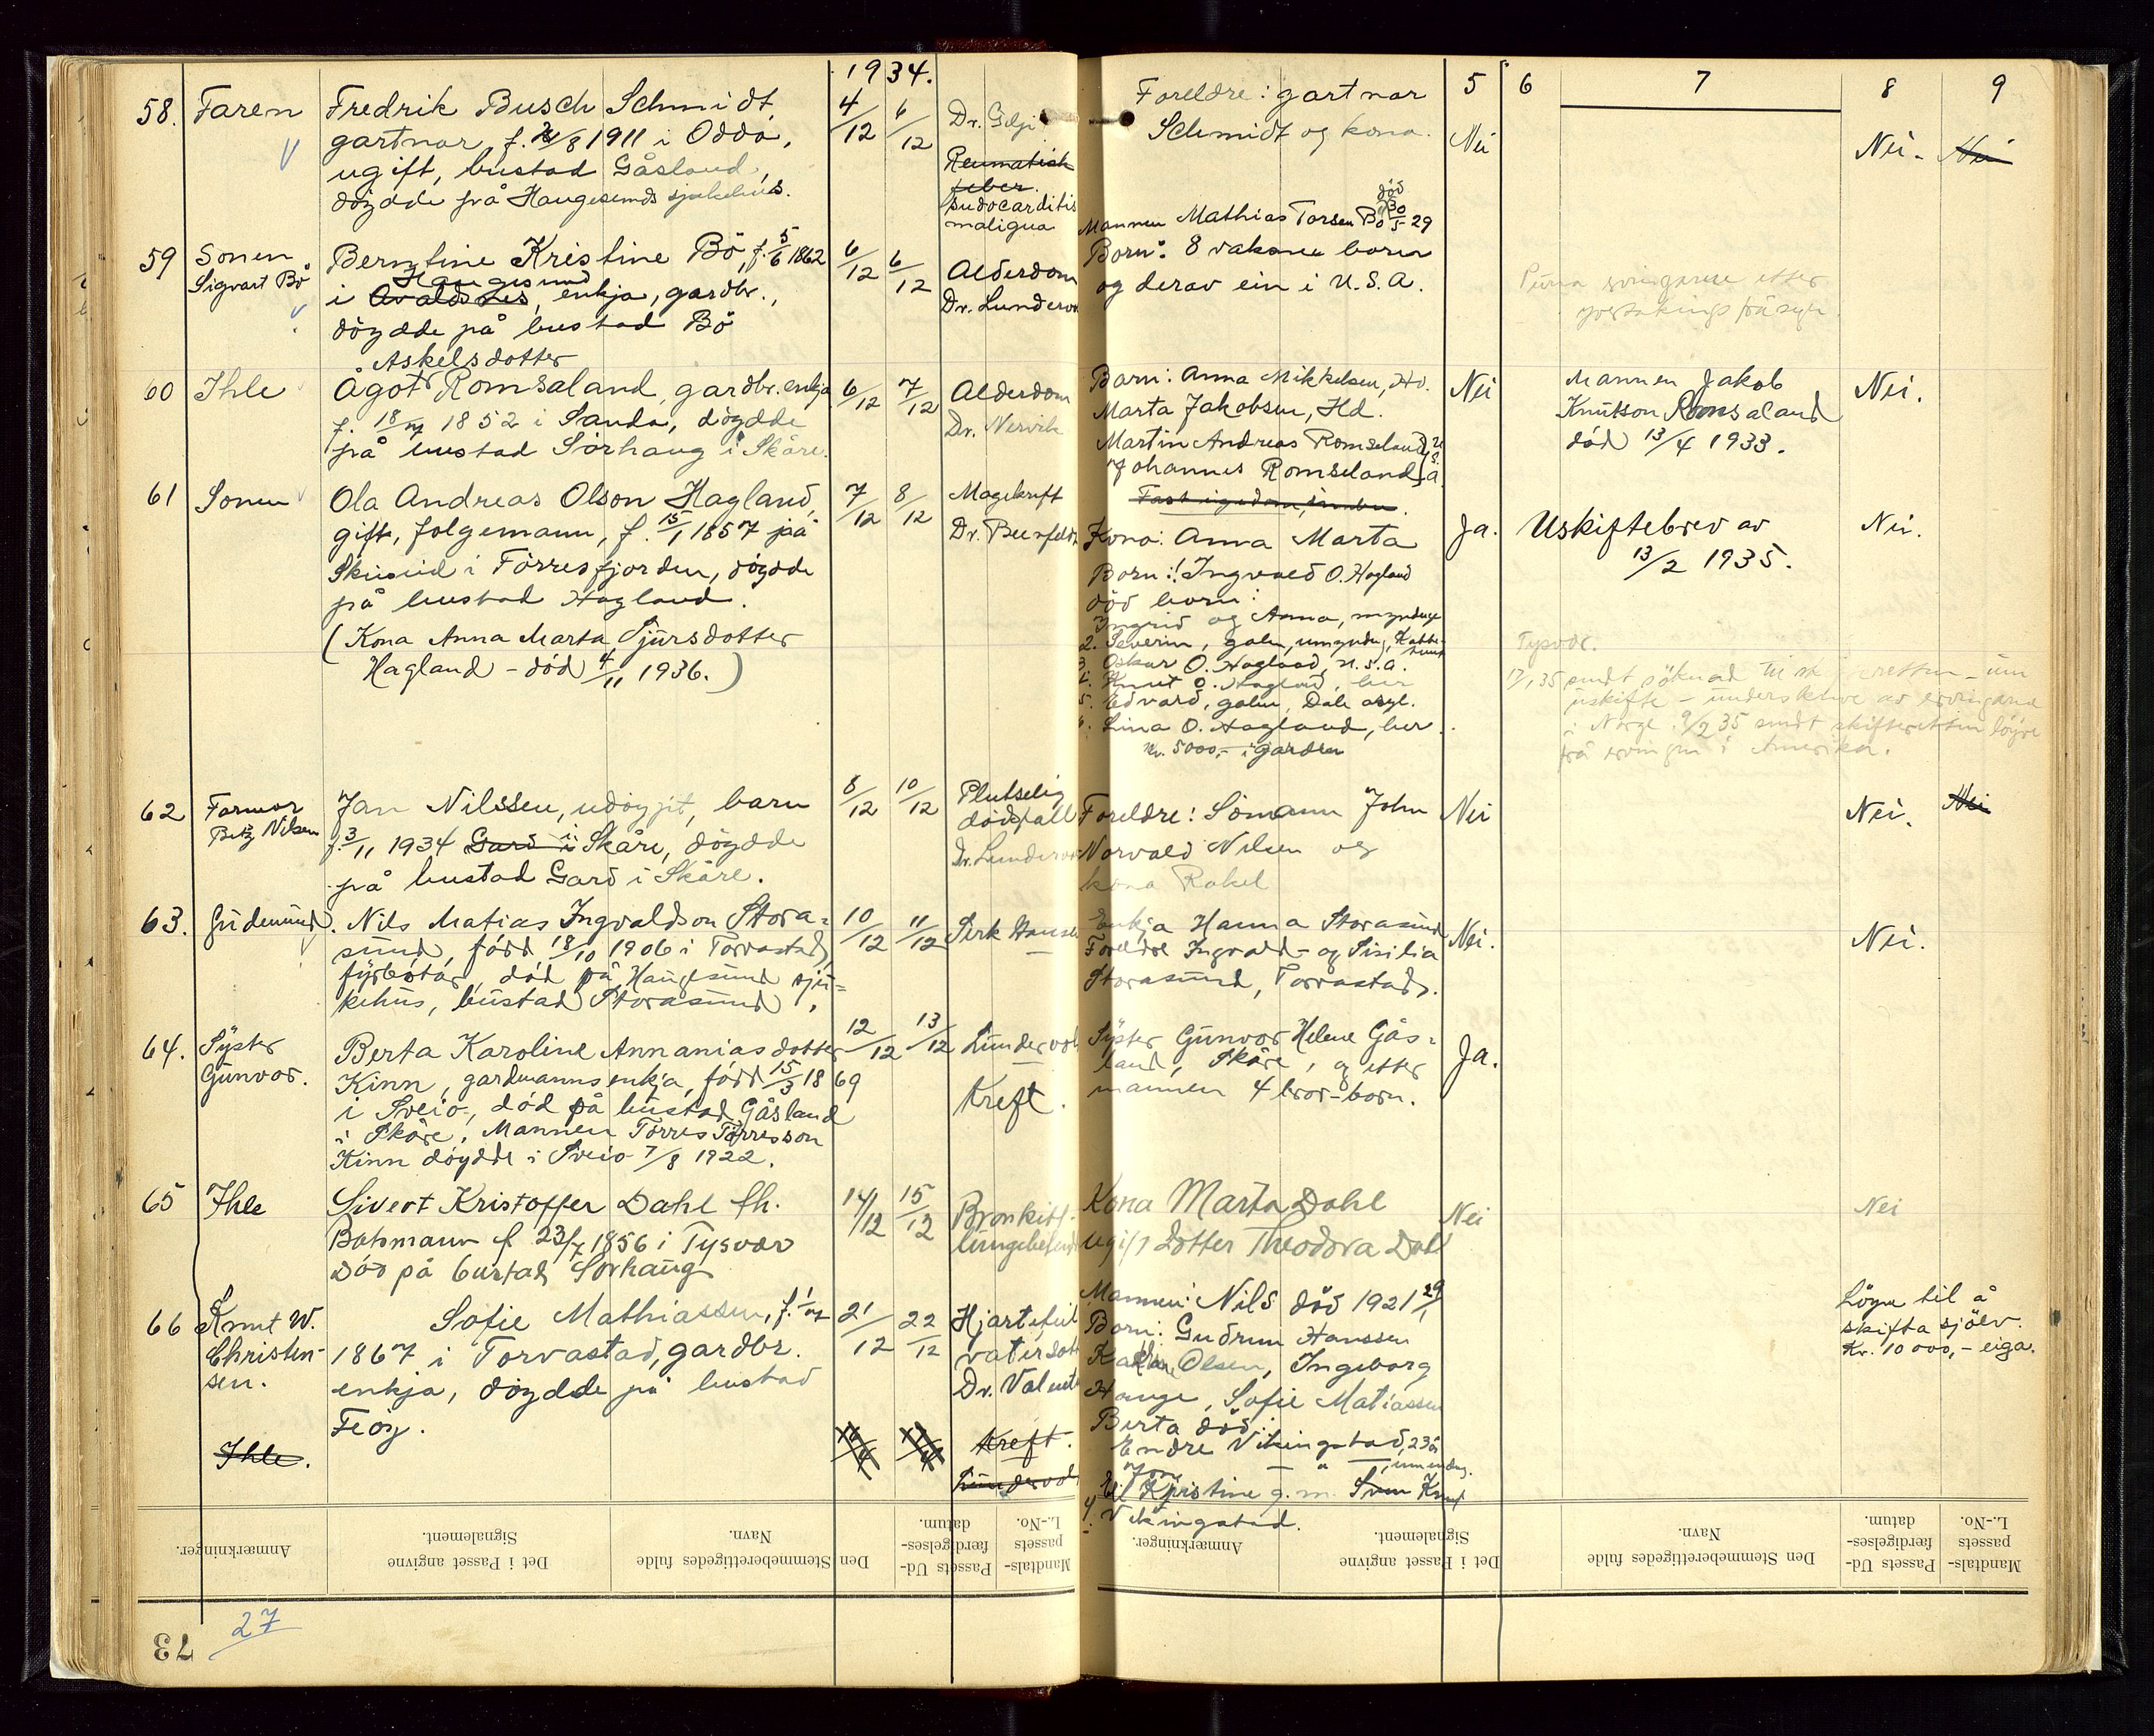 1934.
58. Faren
Fredrik Busch Schmidt,
gartnar, f. /8 1911 i Odda,
ugift, bustad Gåsland,
döydde på Haugesunds sjukehus.
4/12 6/12
Dr.
Reumatisk
feber.
maligna
Foreldre: gartnar
Schmidt og kona.
5 6 7 8 9
Nei
Nei. Nei
59 Sonen
Sigvart Bö
Berntine Kristine Bö, f. 5/6 1862
Haugesund
i Avaldsnes, enkja, gardbr.,
döydde på bustad Bö
6/12 6/12
Alderdom
Dr. Lundervo
Mannen Mathias Torsen Bö död 30/5 29
Born: 8 vaksne born
og derav ein i U.S.A.
Askelsdotter
60 Ihle
Ågot Romsaland, gardbr. enkja
f. 18/7 1852 i Sanda, döydde
på bustad Sörhaug i Skåre.
6/12 7/12
Alderdom
Dr. Nervik
Barn: Anna Mikkelsen,
Marta Jakobsen, Hd.
Martin Andreas Romseland
Johannes Romseland
Nei
Mannen Jakob
Knutson Romsaland
död 13/4 1933.
Nei.
61 Sonen
Ola Andreas Olson Hagland,
gift, folgemann, f. 15/1 1857 på
i Förresfjorden, döydde
på bustad Hagland.
(Kona Anna Marta Sjursdotter
Hagland - död 4/11 1936.)
7/12 8/12
Magekreft
Dr.
Kona: Anna Marta
Born: 1 Ingvald O. Hagland
död born:
Ingrid og Anna, myndige
2. Severin,
3. Oskar O. Hagland, U.S.A.
4. Knut O. Hagland, her
5. Edvard, Dale asyl.
6. Lina O. Hagland, her
Kr. 5000,- i garden
Ja.
Uskiftebrev av
13/2 1935.
Nei.
Tysvær.
17/1 35 sendt söknad til um
uskifte - av ervingane
i Norge. 9/2 35 sendt skifteretten löyve
frå ervingen i Amerika.
62 Farmor
Nilsen
Jan Nilssen, udöypt, barn
f. 3/11 1934 Gard i Skåre, döydde
på bustad Gard i Skåre.
8/12 10/12
Plutseleg
dödsfall
Dr. Lundervo
Foreldre: Sömann John
Norvald Nilsen og
kona Rakel
Nei
Nei. Nei
63. Gudmund
Nils Matias Ingvaldson Stora=
sund, född 18/10 1906 i Torvastad,
fyrbötar, död på Haugesund sju=
kehus, bustad Storasund.
10/12 11/12
Enkja Hanna Storasund
Foreldre Ingvald - og Sisilia
Storasund, Torvastad.
Nei.
Nei.
64. Syster
Gunvor.
Berta Karoline Annaniasdotter
Kinn, gardmannsenkja, född 15/3 1869
i Sveio, död på bustad Gåsland
i Skåre. Mannen Torres Torresson
Kinn döydde i Sveio 7/8 1922.
12/12 13/12
Lundervol
Kreft.
Syster Gunvor Helene Gås=
land, Skåre, og etter
mannen 4 bror-born.
Ja.
65 Ihle
Sivert Kristoffer Dahl fh.
Botsmann f 23/7 1856 i Tysvær
Död på bustad Sörhaug
14/12 15/12
Bronkitt
Kona Marta Dahl
ugift dotter Theodora Dahl
Nei
Nei
66 Knut W.
Christen-
sen.
Sofie Mathiassen, f. 1/7
1867 i Torvastad, gardbr.
enkja, döydde på bustad
Feöy.
21/12 22/12
Hjartefeil
vatersott
Dr. Valent
Mannen: Nils död 1921
Born: Gudrun Hanssen
Olsen, Ingeborg
Hauge, Sofie Matiassen
Berta död:
Endre Vikingstad, 23 år
Kristine g.m. Knut
Vikingstad.
Löyve til å
skifta sjölv.
Kr. 10 000,- eiga.
Ihle.
Kreft.
Lundervol
Anmærkninger.
Det i Passet angivne
Signalement.
Den Stemmeberettigedes fulde
Navn.
Passets Ud-
færdigelses-
datum.
Mandtals-
passets
L.-No.
Anmærkninger.
Det i Passet angivne
Signalement.
Den Stemmeberettigedes fulde
Navn.
Passets Ud-
færdigelses-
datum.
Mandtals-
passets
L.-No.
73
27